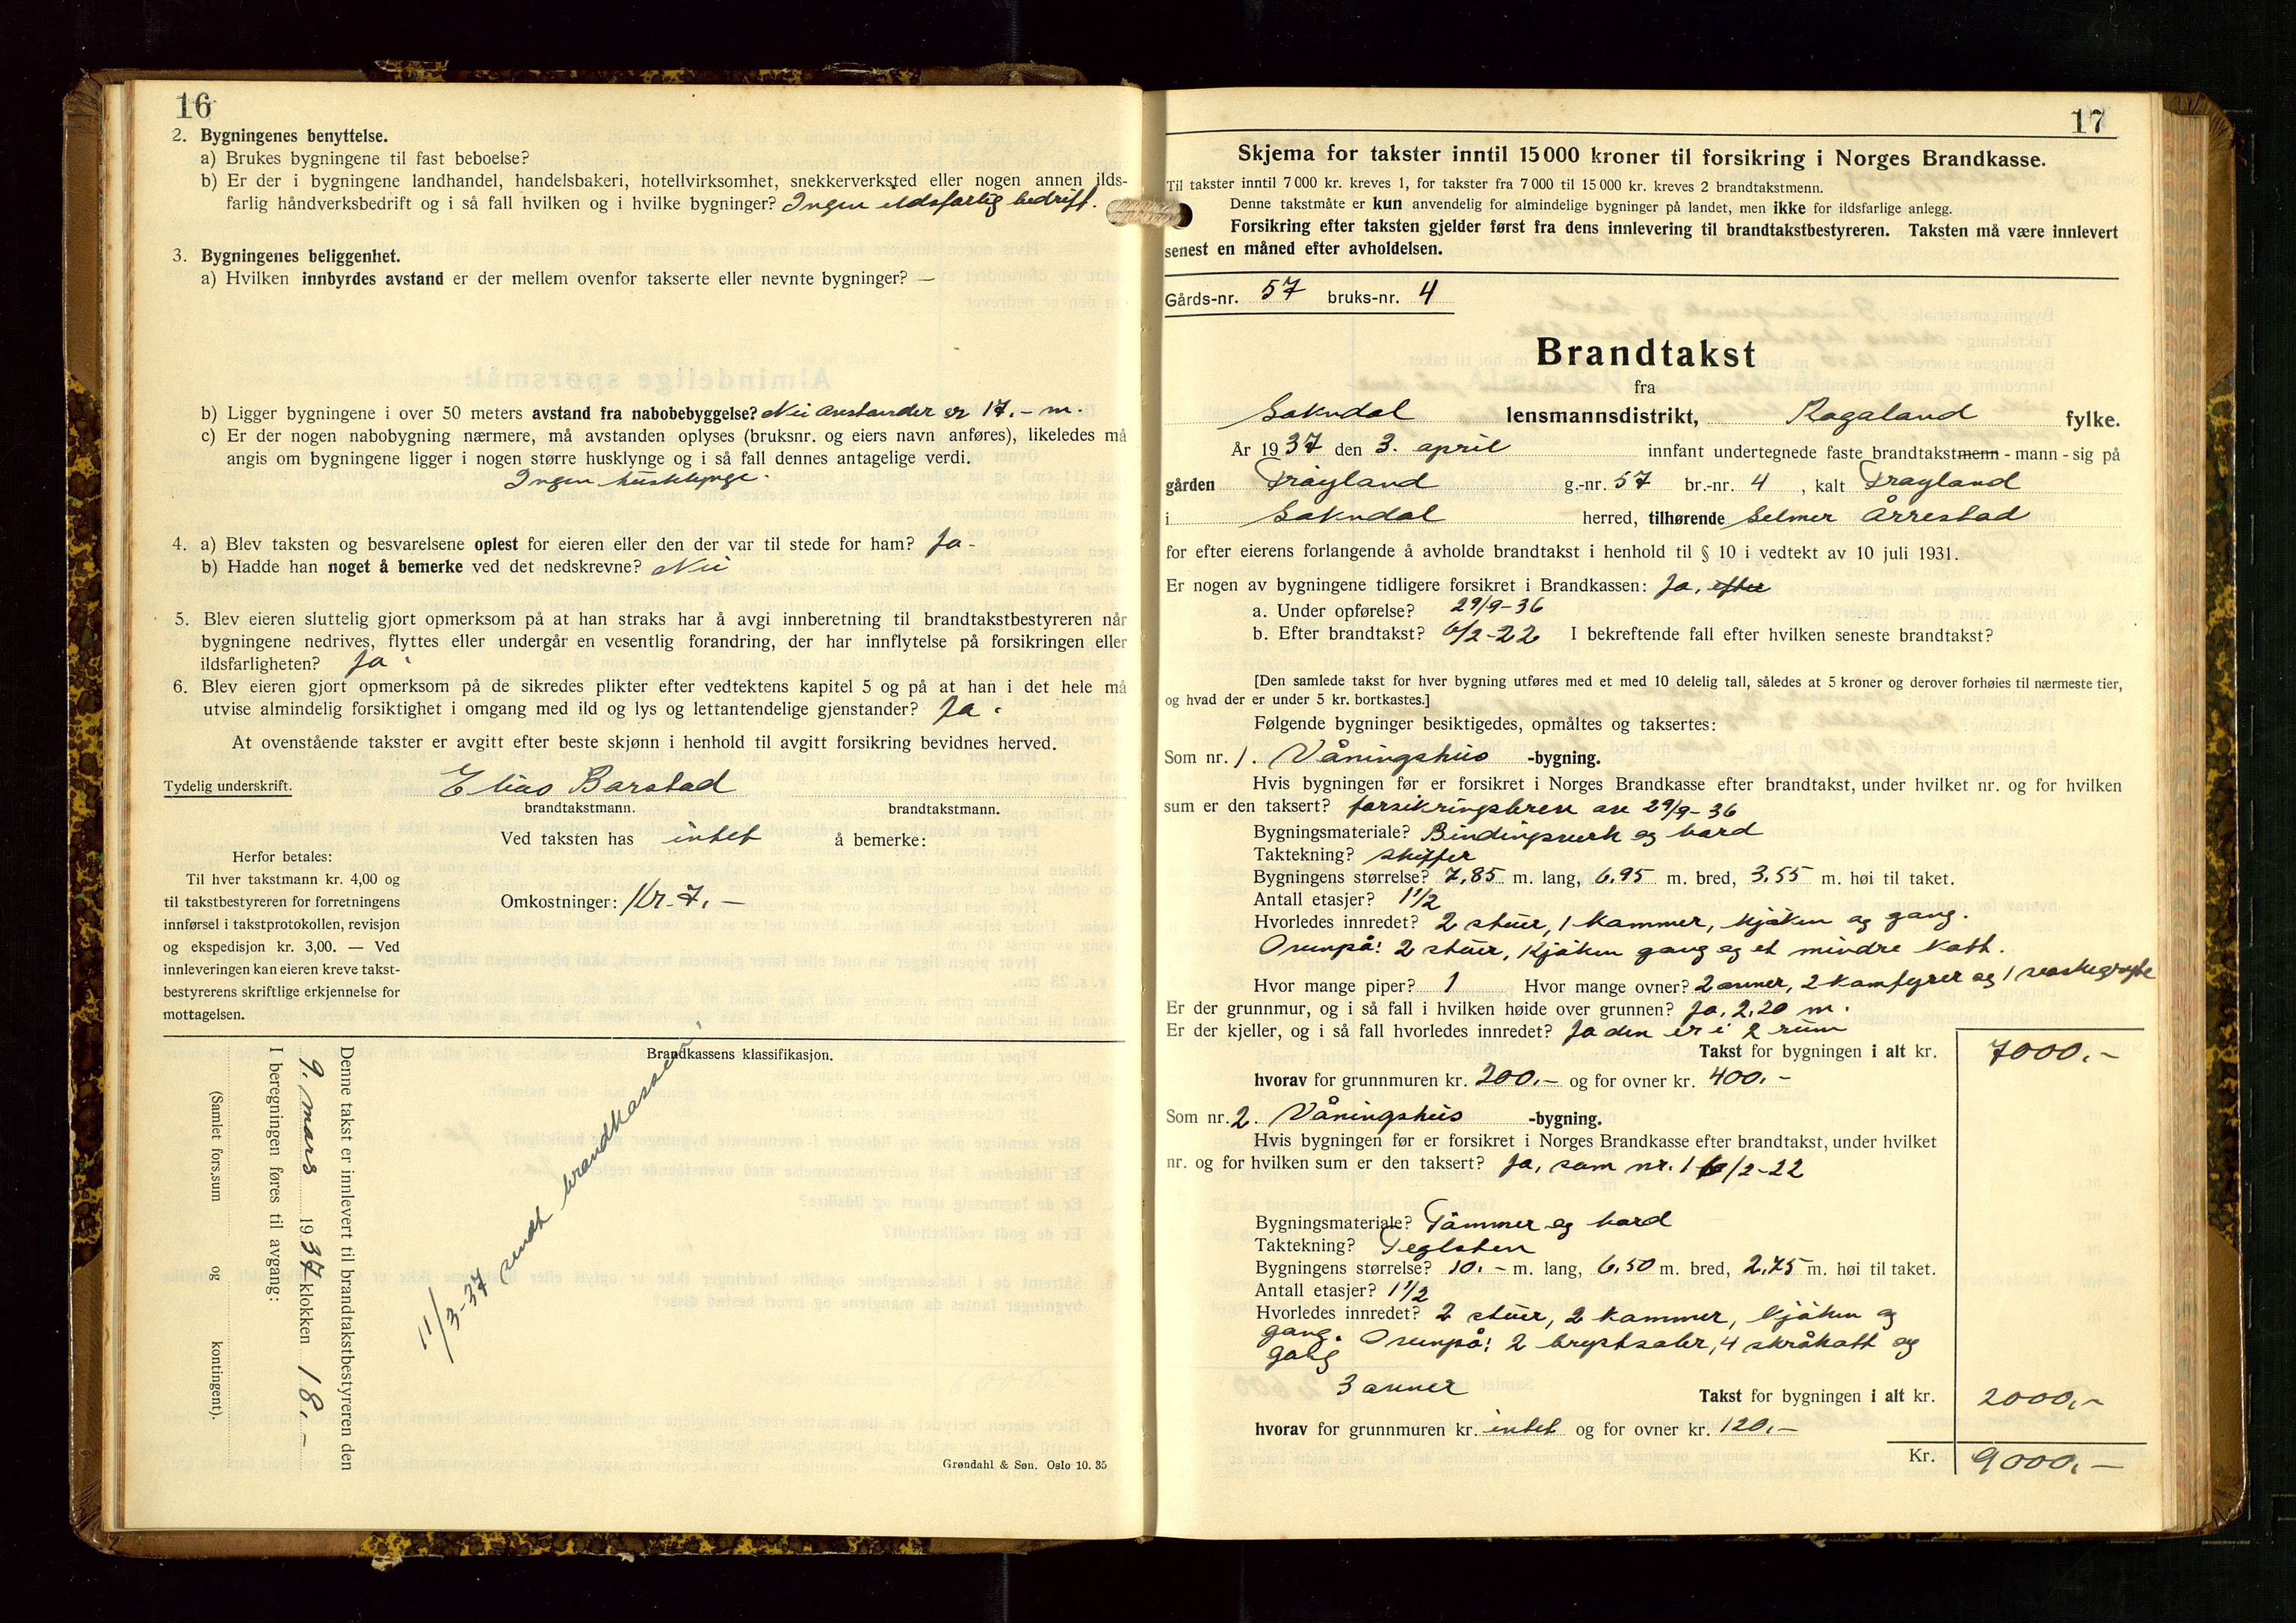 16
2. Bygningenes benyttelse.
a) Brukes bygningene til fast beboelse?
b) Er der i bygningene landhandel, handelsbakeri, hotellvirksomhet, snekkerverksted eller nogen annen ilds-
farlig håndverksbedrift og i så fall hvilken og i hvilke bygninger? Ingen ildsfarlig bedrift.
3. Bygningenes beliggenhet.
a) Hvilken innbyrdes avstand er der mellem ovenfor takserte eller nevnte bygninger? —
b) Ligger bygningene i over 50 meters avstand fra nabobebyggelse? Nei avstanden er 17.- m.
c) Er der nogen nabobygning nærmere, må avstanden oplyses (bruksnr. og eiers navn anføres), likeledes må
angis om bygningene ligger i nogen større husklynge og i så fall dennes antagelige verdi.
Ingen husklynge.
4. a) Blev taksten og besvarelsene oplest for eieren eller den der var til stede for ham? Ja -
b) Hadde han noget å bemerke ved det nedskrevne? Nei
5. Blev eieren sluttelig gjort opmerksom på at han straks har å avgi innberetning til brandtakstbestyreren når
bygningene nedrives, flyttes eller undergår en vesentlig forandring, der har innflytelse på forsikringen eller
ildsfarligheten? Ja.
6. Blev eieren gjort opmerksom på de sikredes plikter efter vedtektens kapitel 5 og på at han i det hele må
utvise almindelig forsiktighet i omgang med ild og lys og lettantendelige gjenstander? Ja.
At ovenstående takster er avgitt efter beste skjønn i henhold til avgitt forsikring bevidnes herved.
Tydelig underskrift. Elias Barstad
brandtakstmann. brandtakstmann.
Ved taksten has intet å bemerke:
Herfor betales:
Til hver takstmann kr. 4,00 og
til takstbestyreren for forretningens
innførsel i takstprotokollen, revisjon
og ekspedisjon kr. 3,00. — Ved
innleveringen kan eieren kreve takst-
bestyrerens skriftlige erkjennelse for
mottagelsen.
Omkostninger: Kr. 7.-
Brandkassens klassifikasjon.
Denne takst er innlevert til brandtakstbestyreren den
9. mars 1937 klokken 18.-
I beregningen føres til avgang:
(Samlet fors.sum og kontingent).
11/3-37 sendt brandkassen
Grøndahl & Søn. Oslo 10. 35
17
Skjema for takster inntil 15000 kroner til forsikring i Norges Brandkasse.
Til takster inntil 7000 kr. kreves 1, for takster fra 7000 til 15000 kr. kreves 2 brandtakstmenn.
Denne takstmåte er kun anvendelig for almindelige bygninger på landet, men ikke for ildsfarlige anlegg.
Forsikring efter taksten gjelder først fra dens innlevering til brandtakstbestyreren. Taksten må være innlevert
senest en måned efter avholdelsen.
Gårds-nr. 57 bruks-nr. 4
Brandtakst
fra
Sokndal lensmannsdistrikt, Rogaland fylke.
År 1937 den 3. april innfant undertegnede faste brandtakstmenn - mann - sig på
gården Frøyland g.-nr. 57 br.-nr. 4, kalt Frøyland
i Sokndal herred, tilhørende Selmer Årrestad
for efter eierens forlangende å avholde brandtakst i henhold til § 10 i vedtekt av 10 juli 1931.
Er nogen av bygningene tidligere forsikret i Brandkassen: Ja, efter
a. Under opførelse? 29/9-36
b. Efter brandtakst? 6/2-22 I bekreftende fall efter hvilken seneste brandtakst?
[Den samlede takst for hver bygning utføres med et med 10 delelig tall, således at 5 kroner og derover forhøies til nærmeste tier,
og hvad der er under 5 kr. bortkastes.]
Følgende bygninger besiktigedes, opmåltes og taksertes:
Som nr. 1. Våningshus -bygning.
Hvis bygningen før er forsikret i Norges Brandkasse efter brandtakst, under hvilket nr. og for hvilken
sum er den taksert? forsikringsbrev av 29/9-36
Bygningsmateriale? Bindingsverk og bord
Taktekning? skiffer
Bygningens størrelse? 7,85 m. lang, 6,95 m. bred, 3,55 m. høi til taket.
Antall etasjer? 1 1/2
Hvorledes innredet? 2 stuer, 1 kammer, kjøken og gang.
Ovenpå: 2 stuer, kjøken gang og et mindre kott.
Hvor mange piper? 1 Hvor mange ovner? 2 ovner, 2 komfyrer og 1 vaskegryte
Er der grunnmur, og i så fall i hvilken høide over grunnen? Ja, 2,20 m.
Er der kjeller, og i så fall hvorledes innredet? Ja den er i 2 rum
Takst for bygningen i alt kr. 7000.-
hvorav for grunnmuren kr. 200.- og for ovner kr. 400.-
Som nr. 2. Våningshus -bygning.
Hvis bygningen før er forsikret i Norges Brandkasse efter brandtakst, under hvilket
nr. og for hvilken sum er den taksert? Ja, som nr. 1 6/2-22
Bygningsmateriale? Tømmer og bord
Taktekning? Teglsten
Bygningens størrelse? 10.- m. lang, 6,50 m. bred, 2,75 m. høi til taket.
Antall etasjer? 1 1/2
Hvorledes innredet? 2 stuer, 2 kammer, kjøken og
gang. Ovenpå: 2 brystsaler, 4 skråkott og
gang
3 ovner Takst for bygningen i alt kr. 2000.-
hvorav for grunnmuren kr. intet og for ovner kr. 120.-
Kr. 9000.-